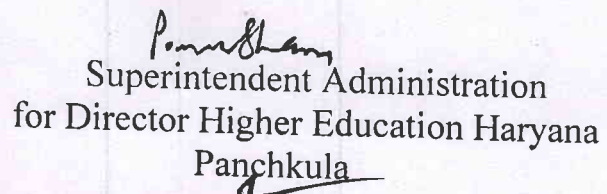 Superintendent Administration
for Director Higher Education Haryana
Panchkula